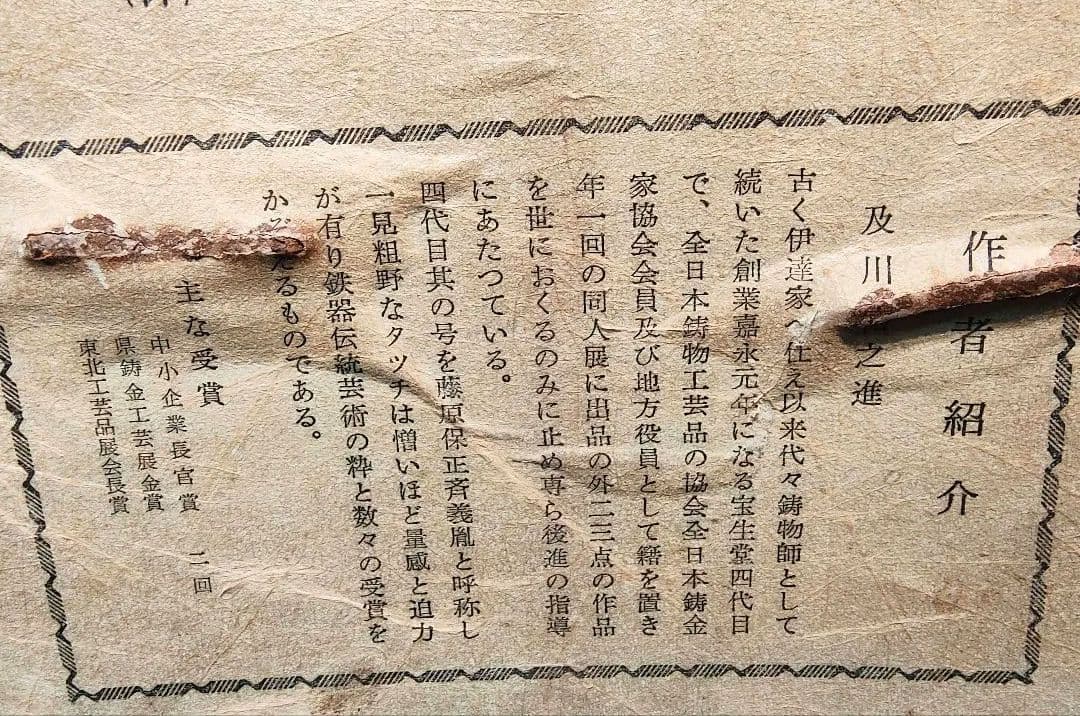 作者紹介
及川 之進
古く伊達家へ仕え以来代々鋳物師として
続いた創業嘉永元年になる宝生堂四代目
で、全日本鋳物工芸品の協会全日本鋳金
家協会会員及び地方役員として籍を置き
年一回の同人展に出品の外二三点の作品
を世におくるのみに止め専ら後進の指導
にあたつている。
四代目其の号を藤原保正斉義胤と呼称し
一見粗野なタッチは憎いほど量感と迫力
が有り鉄器伝統芸術の粋と数々の受賞を
か るものである。
主な受賞
中小企業長官賞 二回
県鋳金工芸展金賞
東北工芸品展会長賞